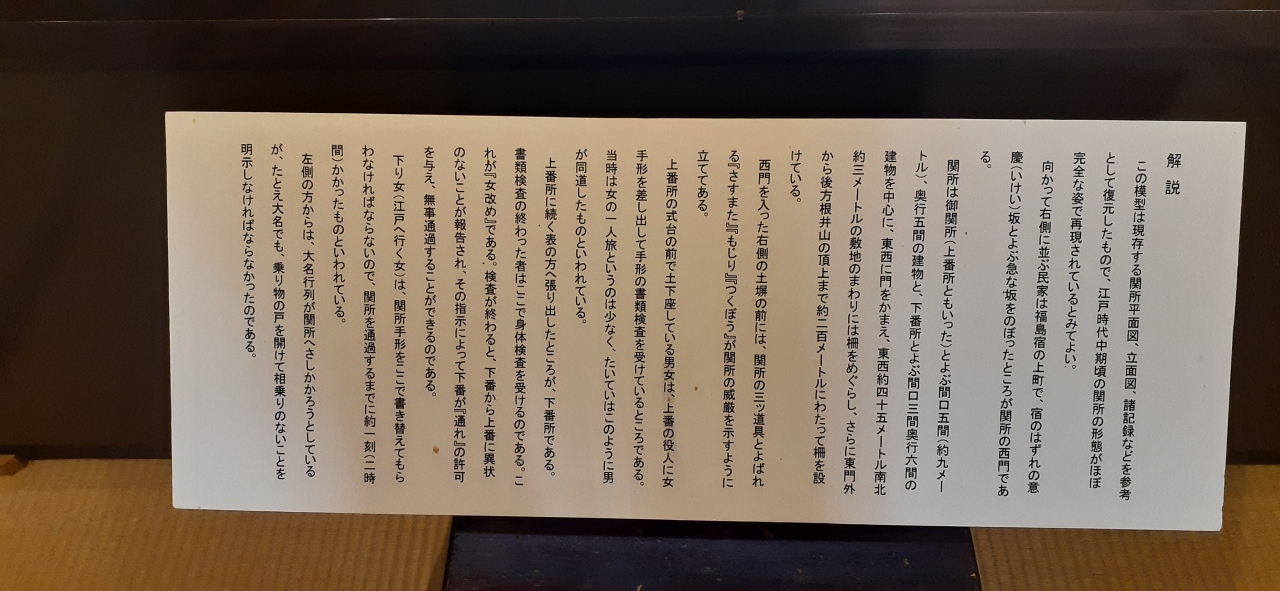 解説
この模型は現存する関所平面図、立面図、諸記録などを参考
として復元したもので、江戸時代中期頃の関所の形態がほぼ
完全な姿で再現されているとみてよい。
向かって右側に並ぶ民家は福島宿の上町で、宿のはずれの意
慶(いけい)坂とよぶ急な坂をのぼったところが関所の西門であ
る。
関所は御関所(上番所ともいった)とよぶ間口五間(約九メー
トル)、奥行五間の建物と、下番所とよぶ間口三間奥行六間の
建物を中心に、東西に門をかまえ、東西約四十五メートル南北
約三メートルの敷地のまわりには柵をめぐらし、さらに東門外
から後方根井山の頂上まで約二百メートルにわたって柵を設
けている。
西門を入った右側の土塀の前には、関所の三ッ道具とよばれ
る『さすまた』『もじり』『つくぼう』が関所の威厳を示すように
立ててある。
上番所の式台の前で土下座している男女は、上番の役人に女
手形を差し出して手形の書類検査を受けているところである。
当時は女の一人旅というのは少なく、たいていはこのように男
が同道したものといわれている。
上番所に続く表の方へ張り出したところが、下番所である。
書類検査の終わった者はここで身体検査を受けるのである。こ
れが『女改め』である。検査が終わると、下番から上番に異状
のないことが報告され、その指示によって下番が『通れ』の許可
を与え、無事通過することができるのである。
下り女(江戸へ行く女)は、関所手形をここで書き替えてもら
わなければならないので、関所を通過するまでに約一刻(二時
間)かかったものといわれている。
左側の方からは、大名行列が関所へさしかかろうとしている
が、たとえ大名でも、乗り物の戸を開けて相乗りのないことを
明示しなければならなかったのである。